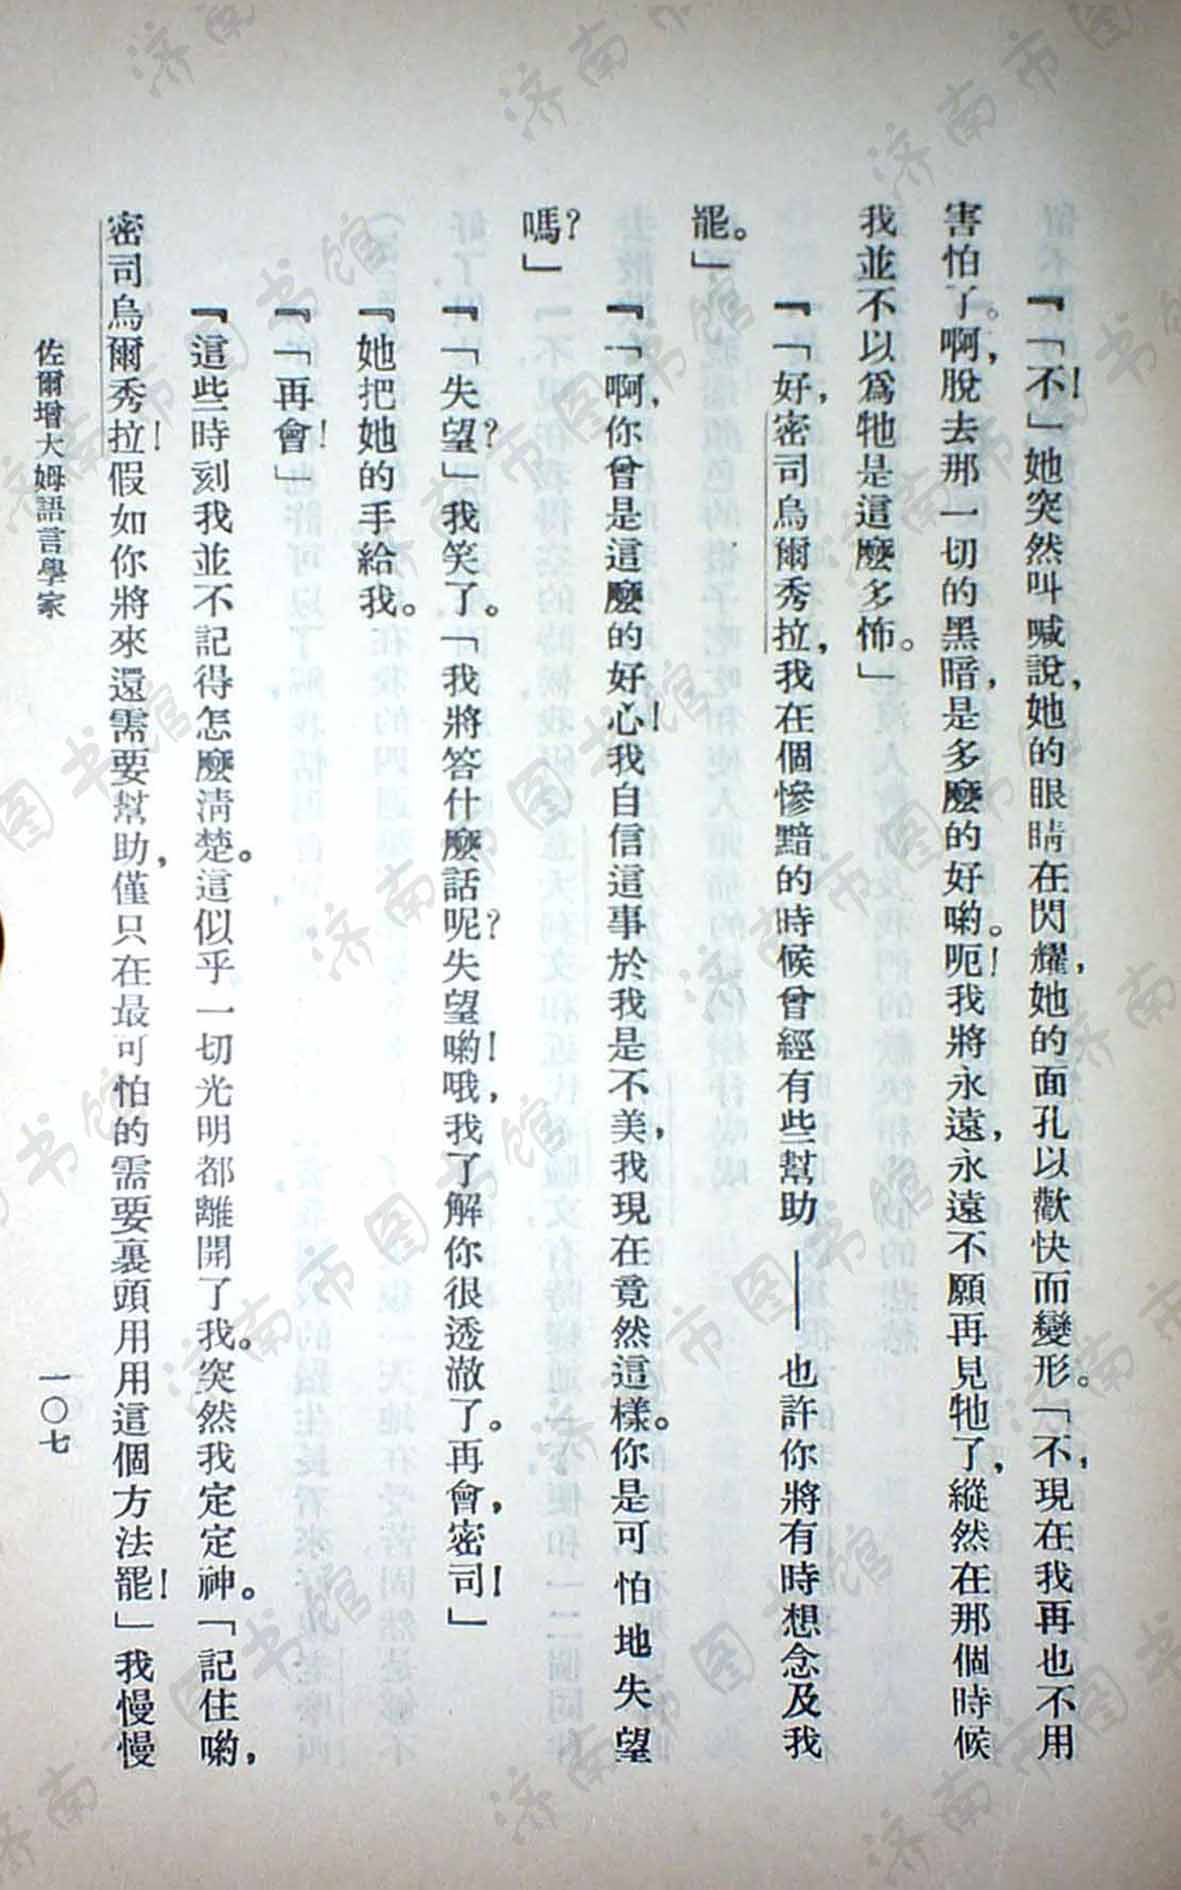 『「不!」她突然叫喊說,她的眼睛在閃耀,她的面孔以歡快而變形。「不,現在我再也不用
害怕了。啊,脫去那一切的黑暗,是多麼的好喲。呃!我將永遠,永遠不願再見牠了,縱然在那個時候
我並不以爲牠是這麼多怖。」
『「好,密司烏爾秀拉,我在個慘黯的時候曾經有些幫助——也許你將有時想念及我
罷。」
『「啊,你曾是這麼的好心!我自信這事於我是不美,我現在竟然這樣。你是可怕地失望
嗎?」
『「失望?」我笑了。「我將答什麼話呢?失望喲!哦,我了解你很透澈了。再會,密司!」
『她把她的手給我。
『「再會!」
『這些時刻我並不記得怎麼淸楚。這似乎一切光明都離開了我。突然我定定神。「記住喲,
密司烏爾秀拉!假如你將來還需要幫助,僅只在最可怕的需要裏頭用用這個方法罷!」我慢慢
佐爾增大姆語言學家
一〇七
济南市图书馆